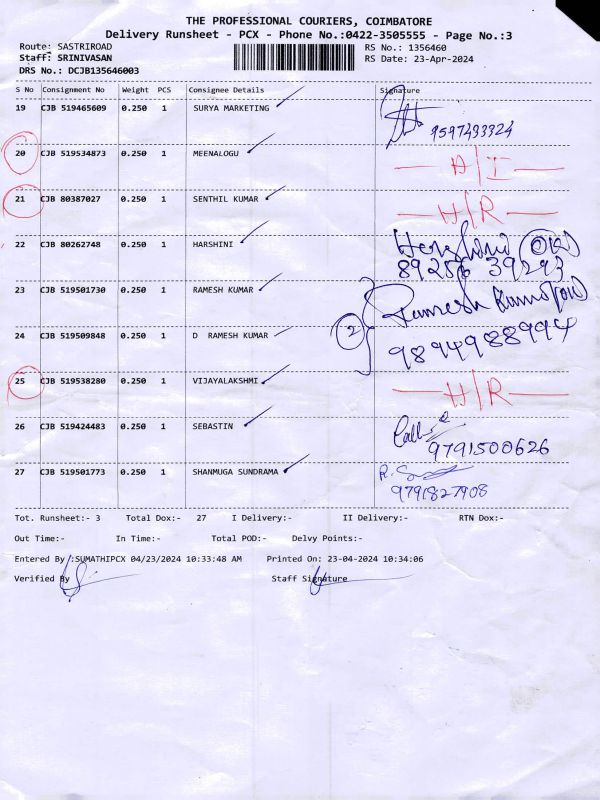 THE PROFESSIONAL COURIERS, COIMBATORE
Delivery Runsheet - PCX - Phone No.:0422-3505555 - Page No.:3
Route: SASTRIROAD RS No.: 1356460
Staff: SRINIVASAN RS Date: 23-Apr-2024
DRS No.: DCJB135646003
S No Consignment No Weight PCS Consignee Details Signature
19 CJB 519465609 0.250 1 SURYA MARKETING
9597433324
20 CJB 519534873 0.250 1 MEENALOGU
21 CJB 80387027 0.250 1 SENTHIL KUMAR H/R
22 CJB 80262748 0.250 1 HARSHINI
89256 39293
23 CJB 519501730 0.250 1 RAMESH KUMAR Ramesh Kumar
24 CJB 519509848 0.250 1 D RAMESH KUMAR 2
9894988994
25 CJB 519538280 0.250 1 VIJAYALAKSHMI H/R
26 CJB 519424483 0.250 1 SEBASTIN
9791500626
27 CJB 519501773 0.250 1 SHANMUGA SUNDRAMA
9791827908
Tot. Runsheet:- 3 Total Dox:- 27 I Delivery:- II Delivery:- RTN Dox:-
Out Time:- In Time:- Total POD:- Delvy Points:-
Entered By :SUMATHIPCX 04/23/2024 10:33:48 AM Printed On: 23-04-2024 10:34:06
Verified By Staff Signature